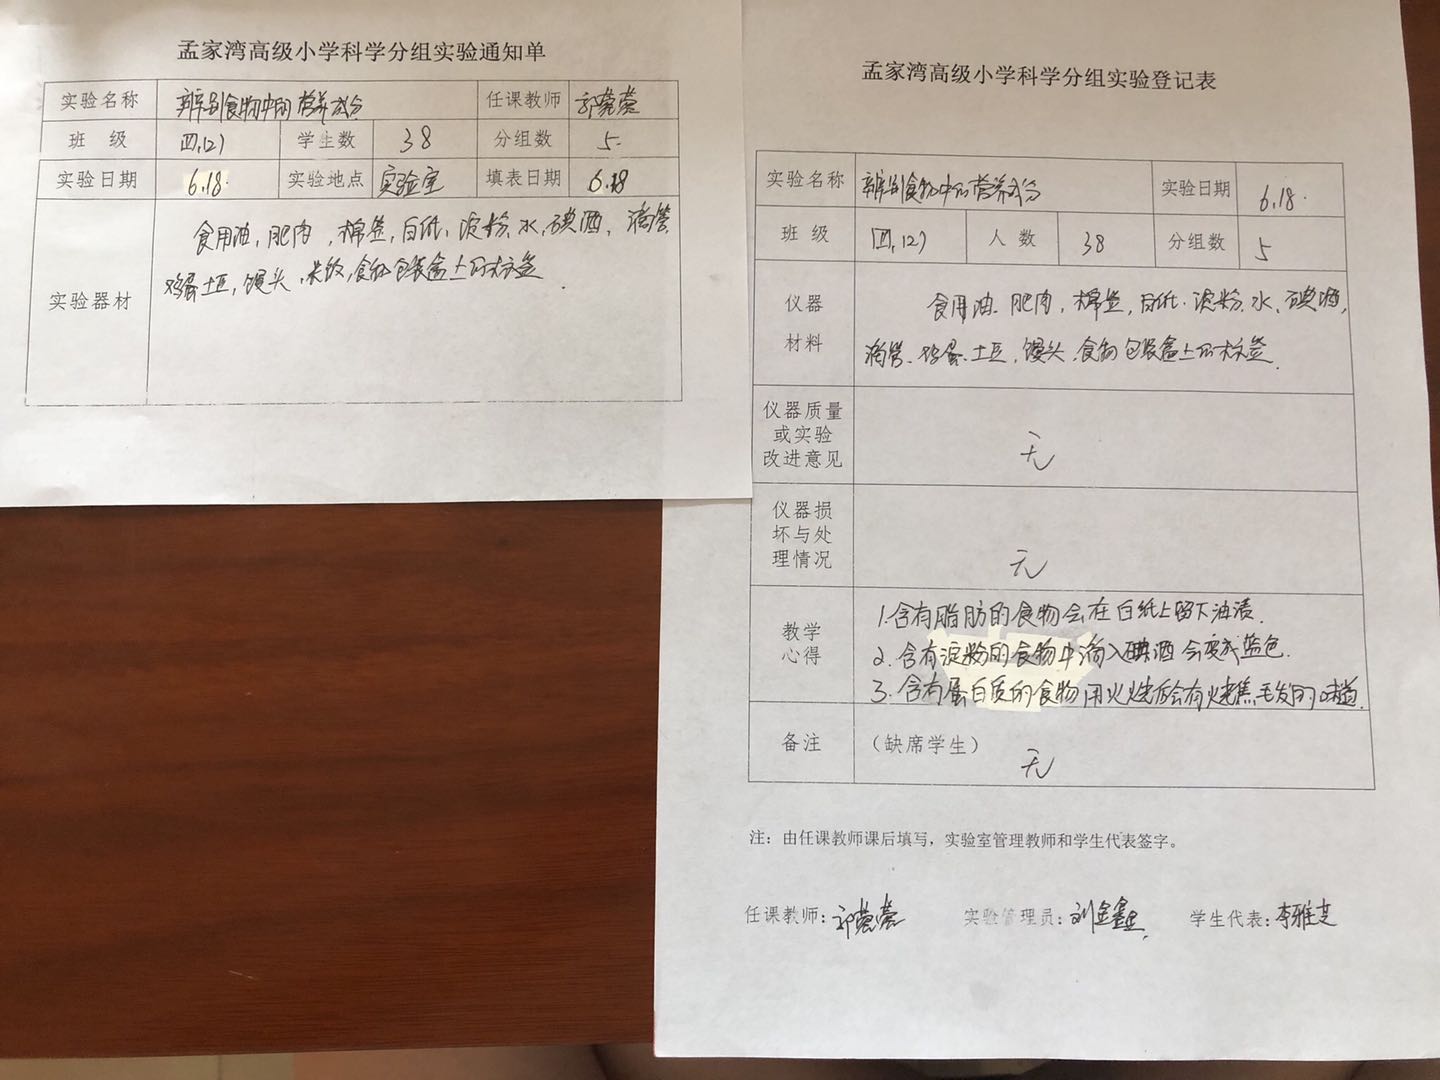 孟家湾高级小学科学分组实验通知单
实验名称 辨别食物中的营养成分 任课教师 郭蓉蓉
班 级 四(2) 学生数 38 分组数 5
实验日期 6.18. 实验地点 实验室 填表日期 6.18
食用油,肥肉,棉签,白纸,淀粉,水,碘酒,滴管,
实验器材 鸡蛋土豆,馒头,米饭,食物包装盒上的标签.
孟家湾高级小学科学分组实验登记表
实验名称 辨别食物中的营养成分 实验日期 6.18.
班 级 四(2) 人 数 38 分组数 5
仪器 食用油、肥肉,棉签,白纸、淀粉、水、碘酒,
材料 滴管、鸡蛋、土豆,馒头、食物包装盒上的标签.
仪器质量
或实验
改进意见
无
仪器损
坏与处
理情况
无
教学
心得
1.含有脂肪的食物会在白纸上留下油渍.
2.含有淀粉的食物中滴入碘酒会变成蓝色.
3.含有蛋白质的食物用火烧后会有烧焦毛发的味道.
备注 (缺席学生)
无
注:由任课教师课后填写,实验室管理教师和学生代表签字。
任课教师:郭蓉蓉 实验管理员:刘金鑫 学生代表:李雅